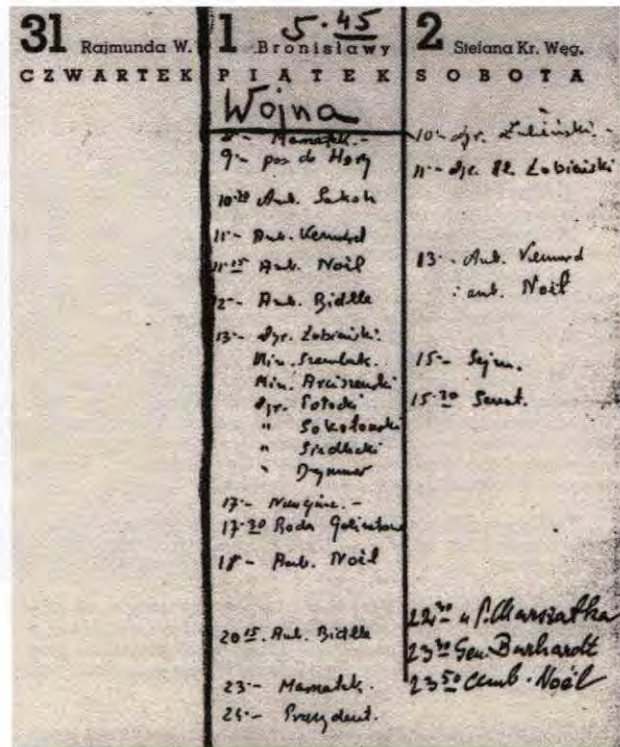 31 Rajmunda W.
CZWARTEK
5.45
1 Bronisławy
PIĄTEK
Wojna
8 - Marszałek. -
9 - pos de Hory
10.30 Amb. Sakoh
11 - Amb. Kennard
11.25 Amb. Noël
12 - Amb. Biddle
13 - dyr. Łubieński.
Min. Szembek.
Min. Arciszewski
dyr. Potocki
" Sokołowski
" Siedlecki
" Drymmer
17 -
17.30 Rada Gabinetowa
18 - Amb. Noël
20.15. Amb. Biddle
23 - Marszałek.
24 - Prezydent.
2 Stefana Kr. Węg.
SOBOTA
10 - dyr. Łubieński. -
11 - dyr. Łubieński
13 - Amb. Kennard
i amb. Noël
15 - Sejm.
15.30 Senat.
22.30 u P. Marszałka
23.30 Gen. Burhardt
23.50 amb. Noël